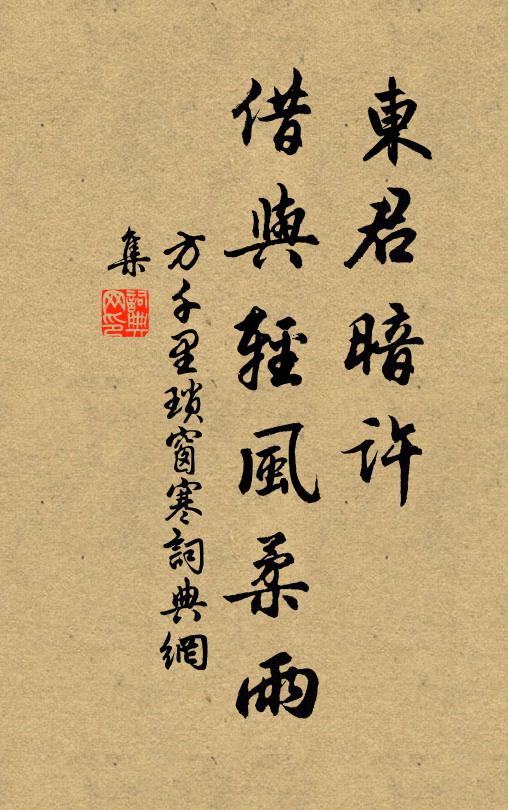 東君暗許
借與輕風柔雨
方千里瑣窗寒詞典網
集
詞典
网印